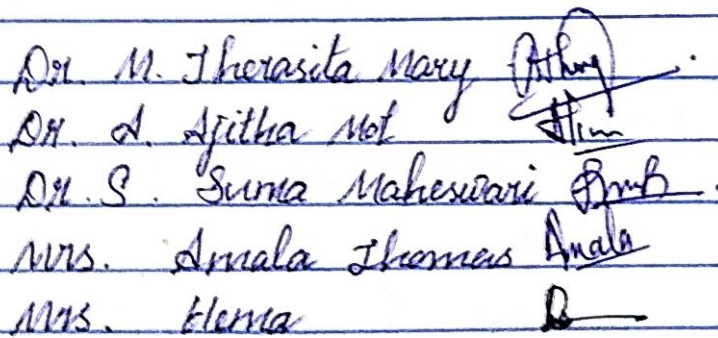 Dr. M. Therasita Mary
Dr. A. Ajitha Mol
Dr. S. Suma Maheswari
Mrs. Amala Thomas Amala
Mrs. Hema